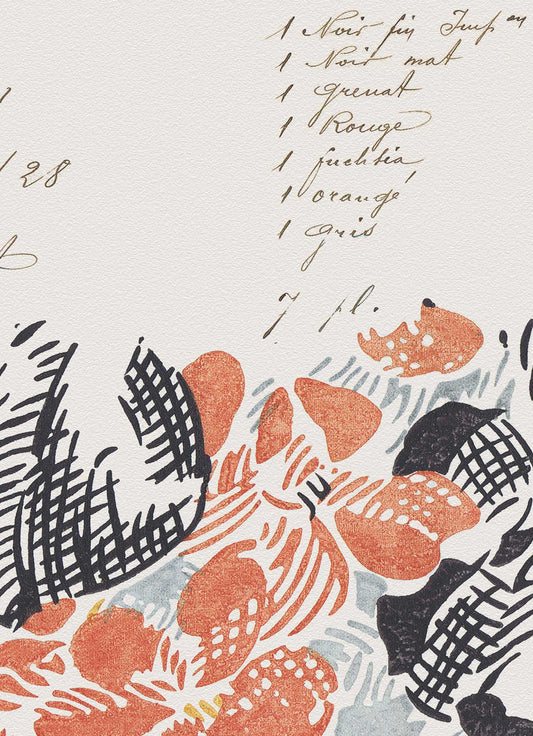 1 Noir fin Imp en
1 Noir mat
1 grenat
1 Rouge
1 fuchsia
128
1 orangé
1 gris
7 pl.